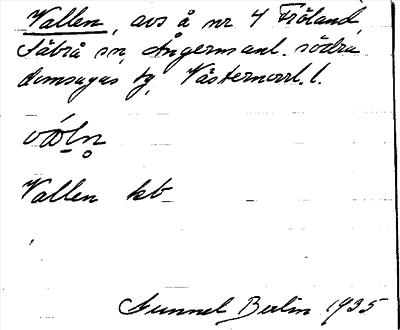 Vallen, avs å nr 4 Fröland,
Säbrå sn, Ångermanl. södra
domsagas tg, Västernorrl. l.
Vallen kb
Gunnel Berlin 1935